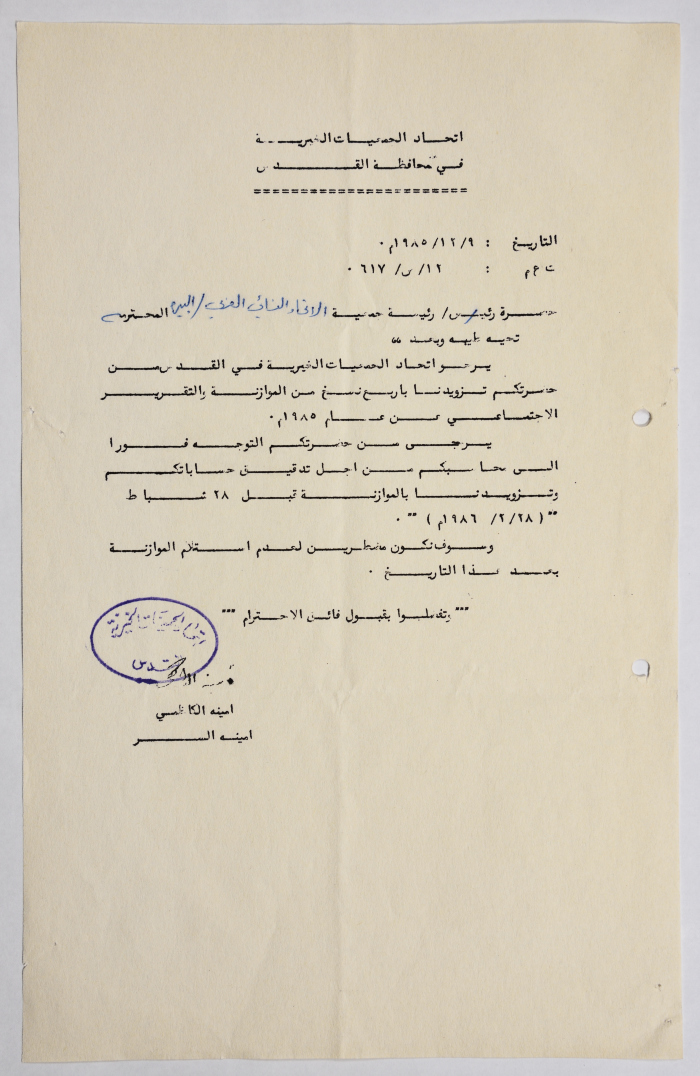 اتحاد الجمعيات الخيرية
في محافظة القدس
======================
التاريخ : ٩/١٢/١٩٨٥م ٠
: ١٢/س/٦١٧ ٠
حضرة رئيس/ رئيسة جمعية الاتحاد النسائي العربي/البيرة المحترمه
تحيه طيبه وبعد ،،
يرجو اتحاد الجمعيات الخيرية في القدس من
حضرتكم تزويدنا باربع نسخ من الموازنة والتقرير
الاجتماعي عن عام ١٩٨٥م ٠
يرجى من حضرتكم التوجه فورا
الى محاسبكم من اجل تدقيق حساباتكم
وتزويدنا بالموازنة قبل ٢٨ شباط
" (٢٨/٢/ ١٩٨٦م ) " ٠
وسوف نكون مضطرين لعدم استلام الموازنة
بعد هذا التاريخ ٠
""" وتفضلوا بقبول فائق الاحترام """
اتحاد الجمعيات الخيرية
القدس
امينه الكاظمي
امينه السر